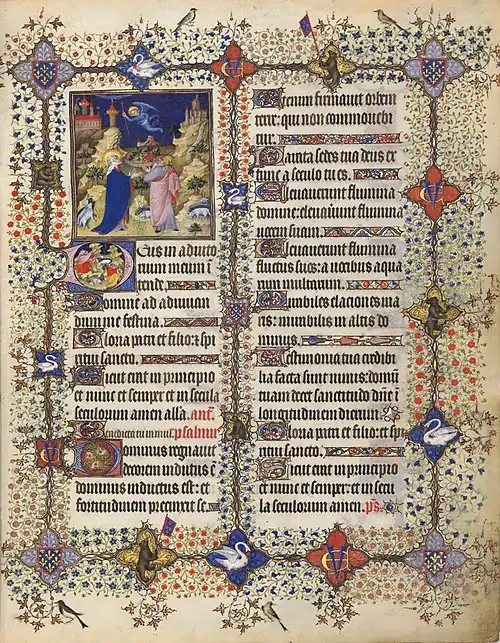 Deus in adiuto
rium meum ī
tende.
Domine ad adiuuan
dum me festina.
Gloria patri et filio: et spi
ritui sancto.
Sicut erat in principio
et nunc et semper et in secula
seculorum amen alla. ant.
Benedicta tu in mul. psalmus
Dominus regnauit
decorem indutus ē
dominus indutus est: et
fortitudinem precinxit se.
Etenim firmauit orbem
terre: qui non commouebi
tur.
Parata sedes tua deus ex
tunc a seculo tu es.
Eleuauerunt flumina
domine: eleuauerunt flumina
uocem suam.
Eleuauerunt flumina
fluctus suos: a uocibus aqua
rum multarum.
Mirabiles elaciones ma
ris: mirabilis in altis do
minus.
Testimonia tua credibi
lia facta sunt nimis: domum
tuam decet sanctitudo dn̄e ī
longitudinem dierum.
Gloria patri et filio: et spi
ritui sancto.
Sicut erat in principio
et nunc et semper: et in secu
la seculorum amen. ps̄.